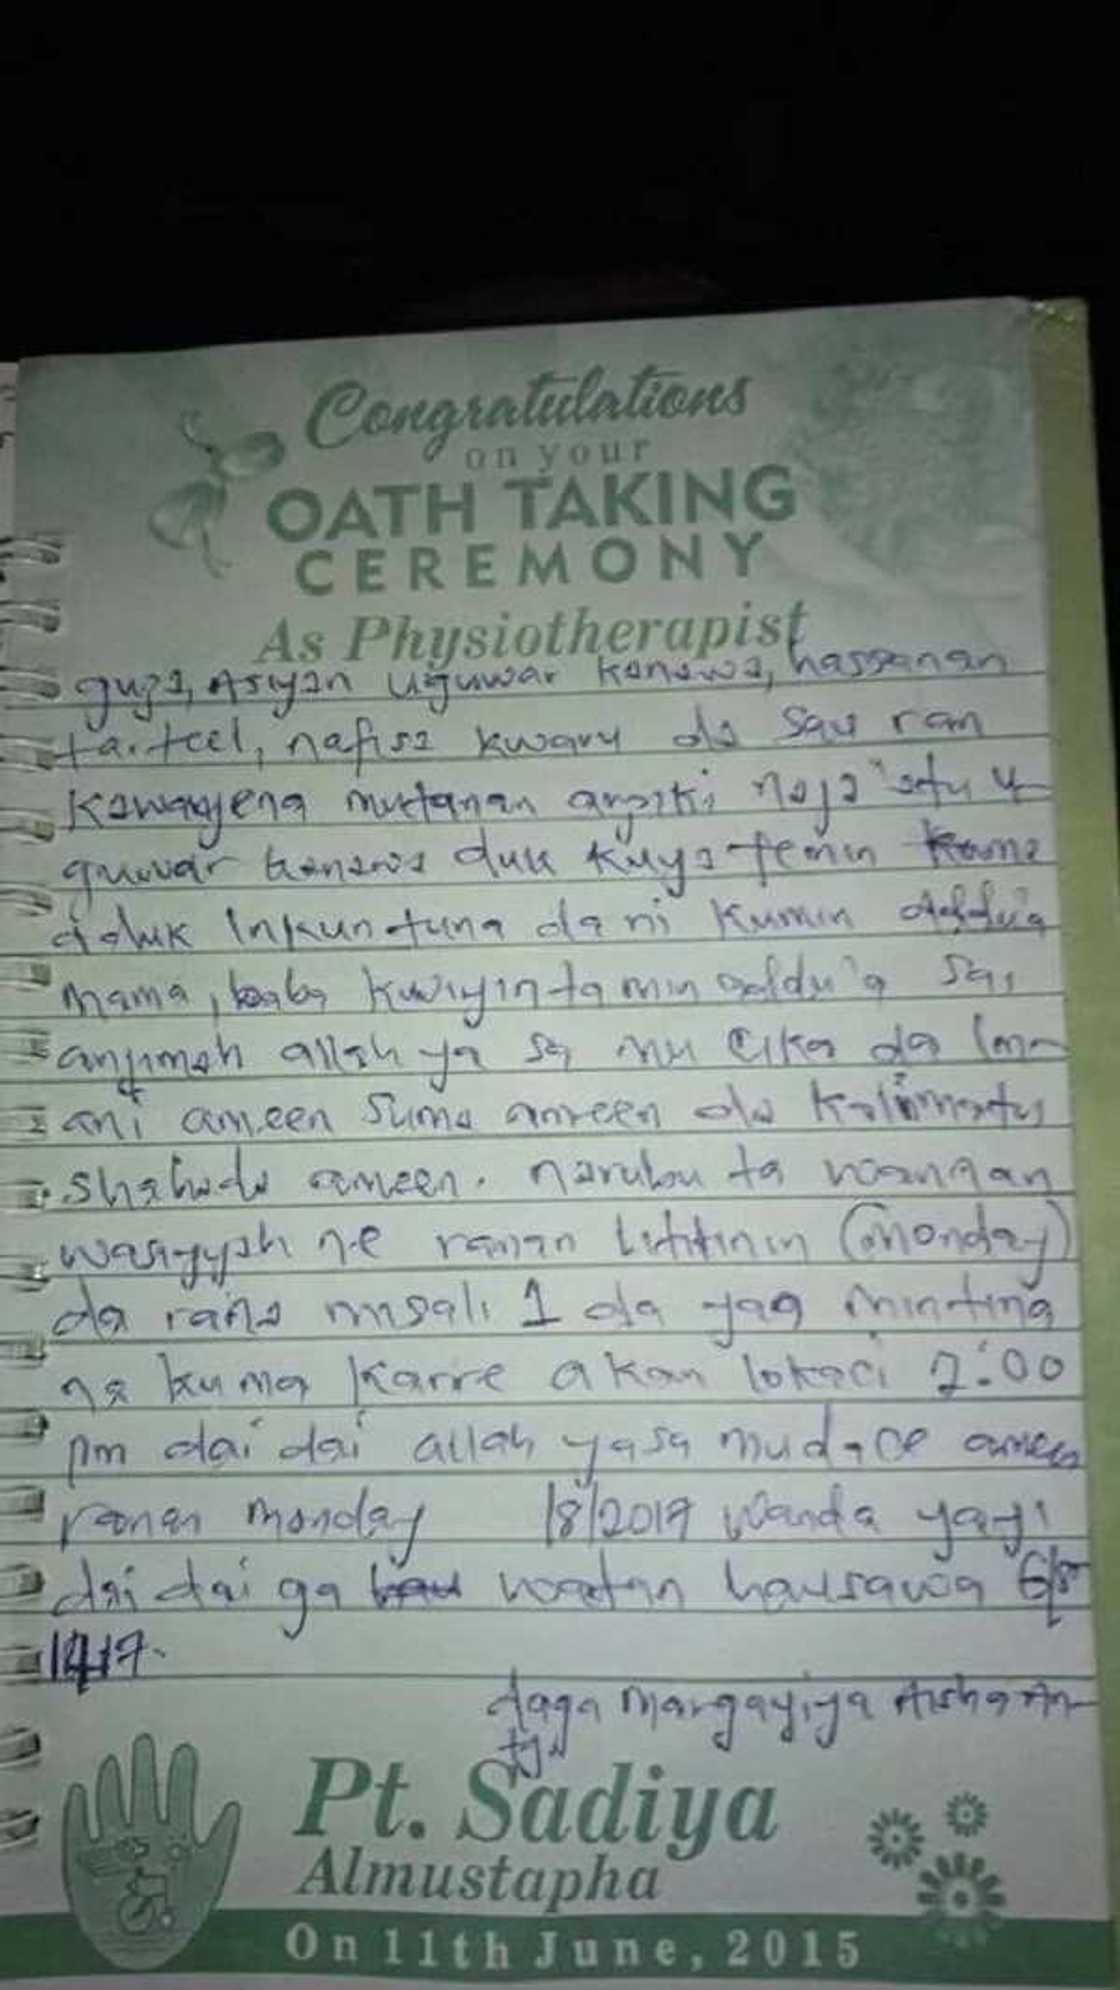 Congratulations
on your
OATH TAKING
CEREMONY
As Physiotherapist
guza, Asiyan Uguwar Kanawa, hassanan
nafisa kwary da Sau ran
Kawayena mutanan arziki naja'atu U-
guwar kanawa duk Kuya femin Kama
daluk Inkun tuna da ni Kumin addu'a
mama, baba Kuyi inta min addu'a Sai
anjimah allah ya sa mu Cika da Im-
ani ameen Suma ameen da Kalimatus
Shahada ameen. narubu ta wannan
wasiyyah ne ranan litinin (monday)
da rana misali 1 da yan Minting
na kuma Karre akan lokaci 2:00
pm dai dai allah yasa mudace ameen
ranan monday 1/8/2017 Wanda yayi
dai dai ga watan hausawa 6/8
1417.
daga Margayiya Aisha An-
Pt. Sadiya
Almustapha
On 11th June, 2015